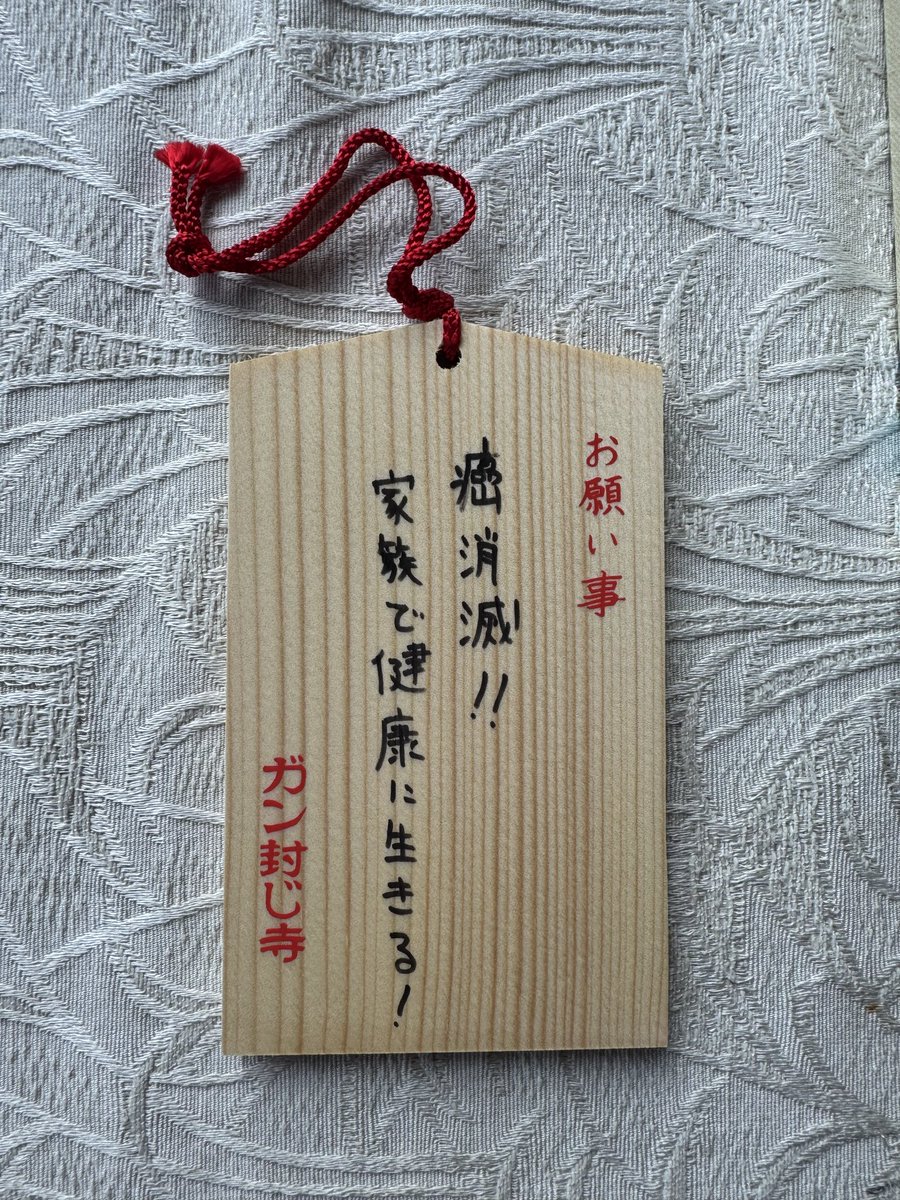 お願い事
癌消滅!!
家族で健康に生きる!
ガン封じ寺